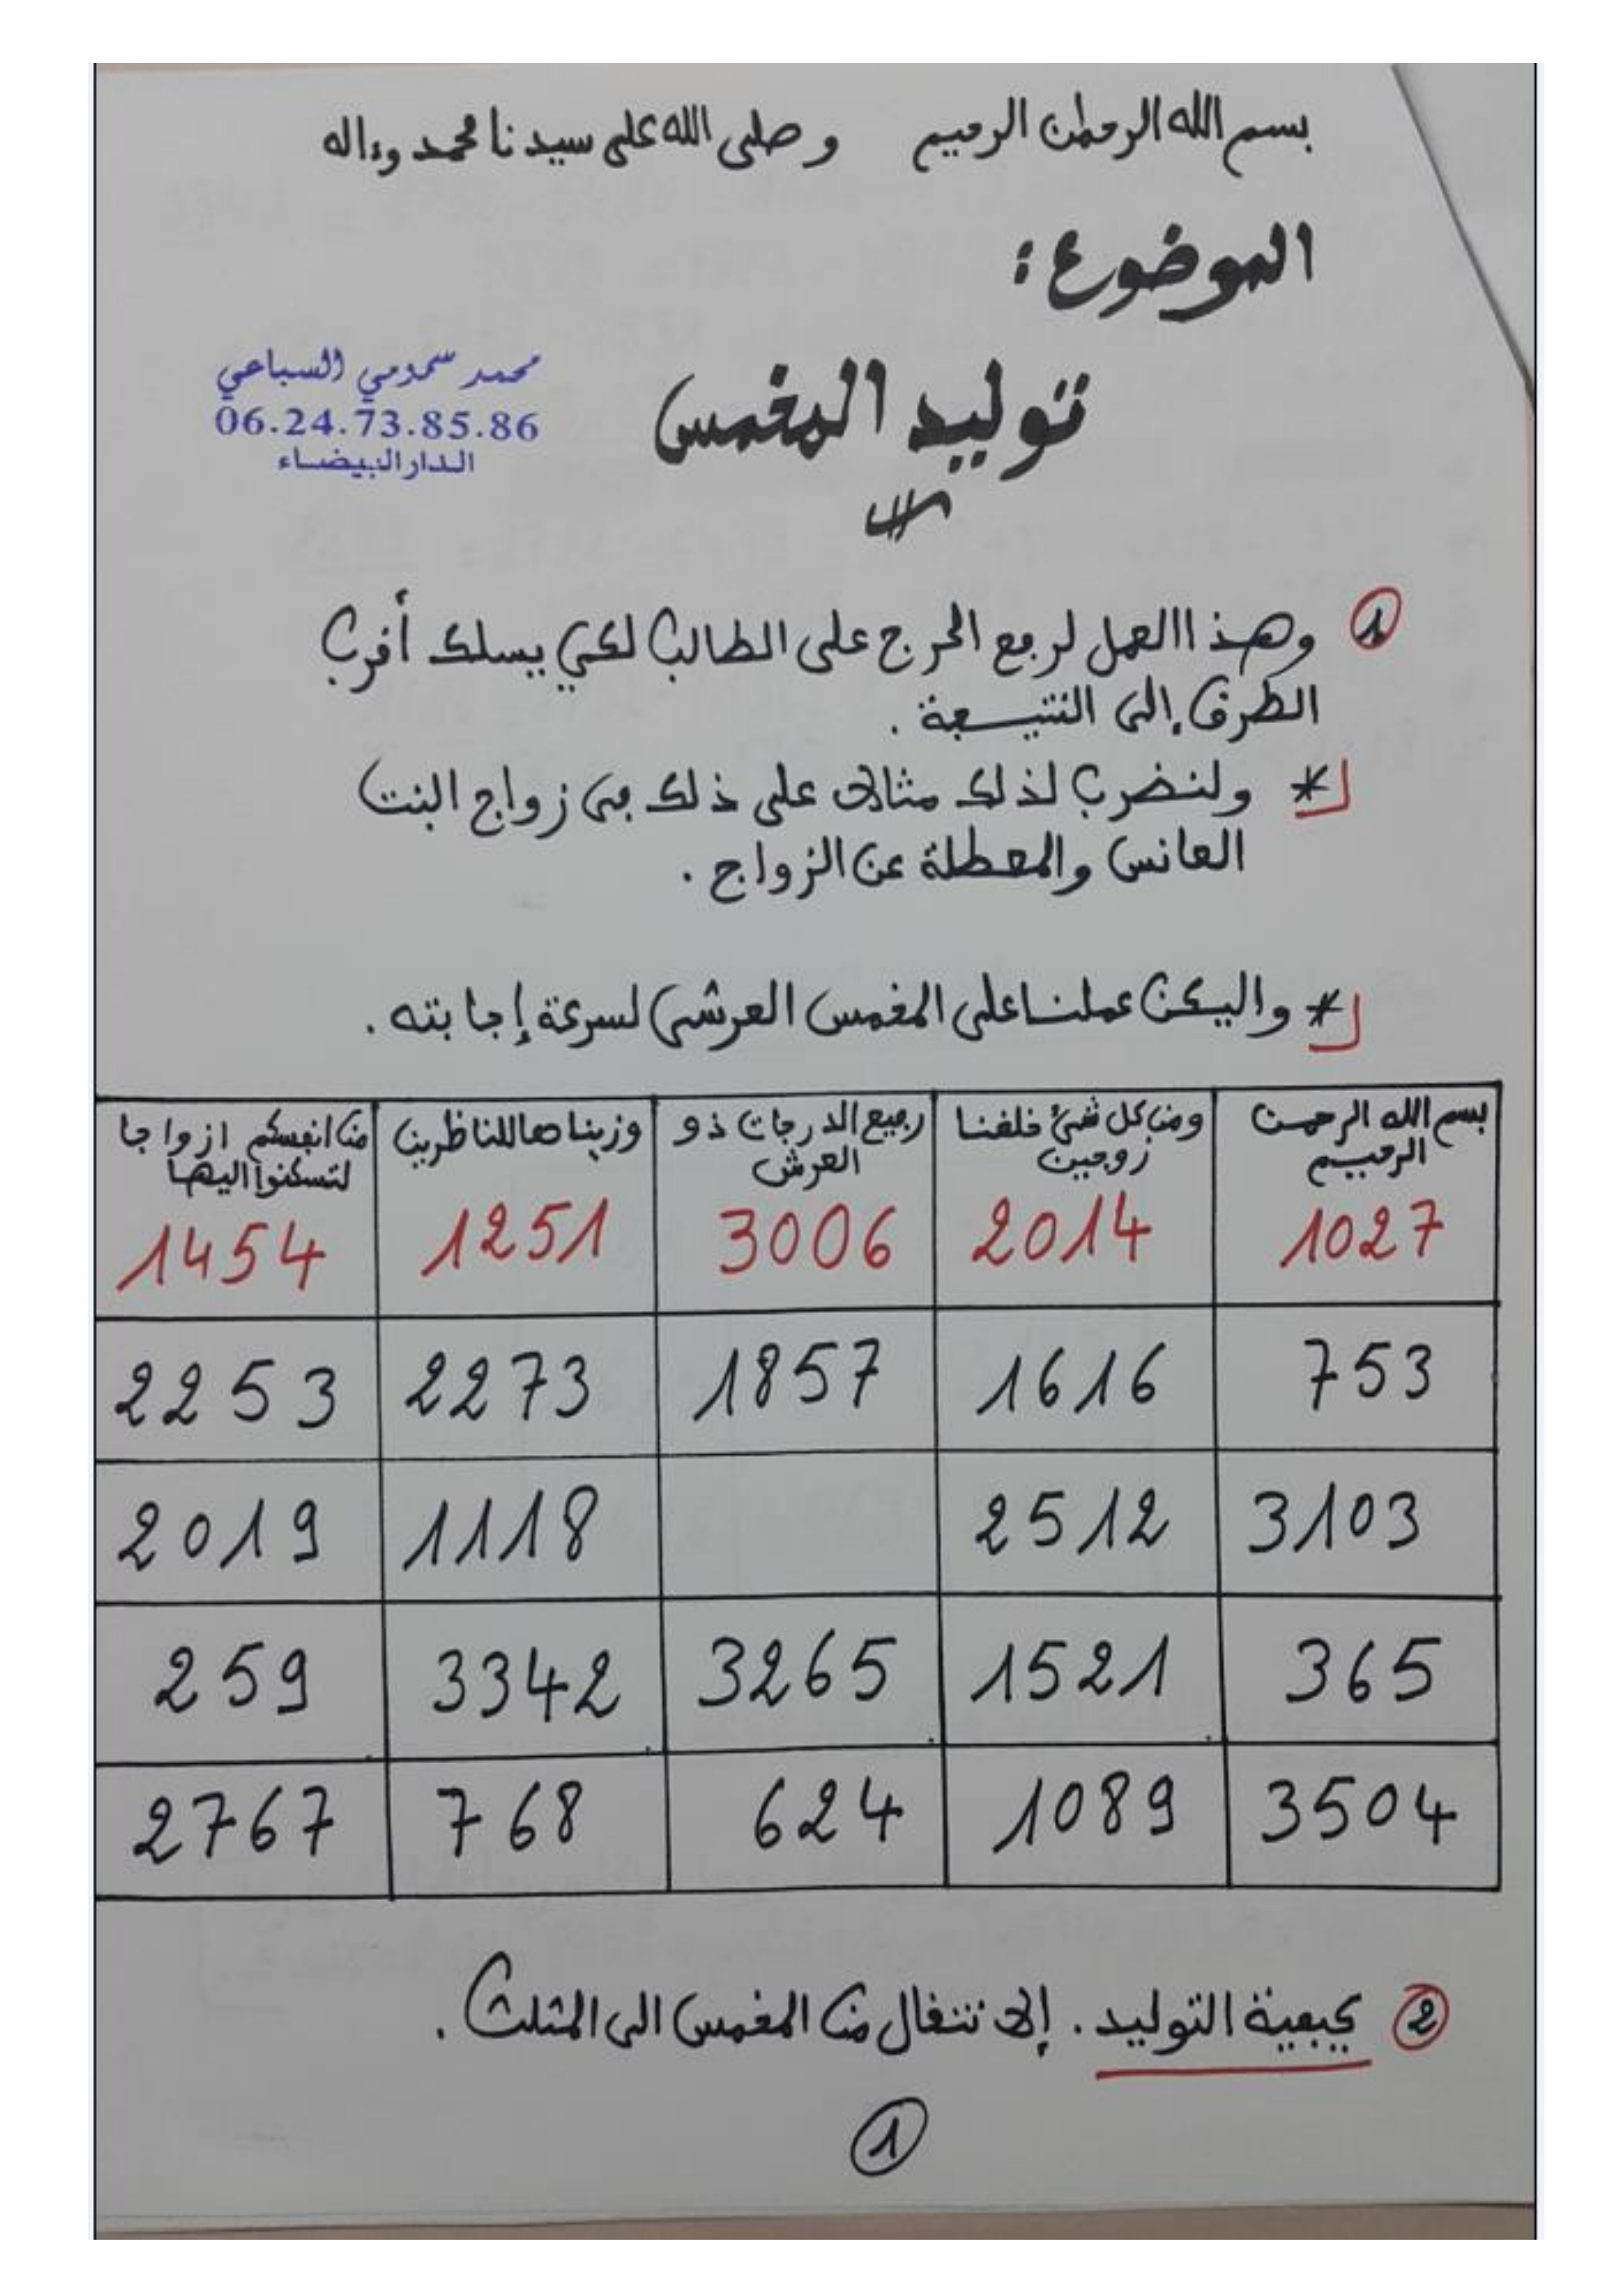 بسم الله الرحمان الرحيم وصلى الله على سيدنا محمد وءاله
الموضوع :
توليد المخمس
محمد سمومي السباعي
06.24.73.85.86
الدار البيضاء
1 وهذا العمل لرفع الحرج على الطالب لكي يسلك أقرب
الطرق إلى النتيجة .
* ولنضرب لذلك مثالا على ذلك في زواج البنت
العانس والمعطلة عن الزواج .
* واليكن عملنا على المخمس العرشي لسرعة إجابته .
بسم الله الرحمن الرحيم
ومن كل شئ خلقنا زوجين
رفيع الدرجات ذو العرش
وزيناها للناظرين
من انفسكم ازواجا لتسكنوا اليها
1027 2014 3006 1251 1454
753 1616 1857 2273 2253
3103 2512 1118 2019
365 1521 3265 3342 259
3504 1089 624 768 2767
2 كيفية التوليد . إلا نتقال من المخمس الى المثلث .
1